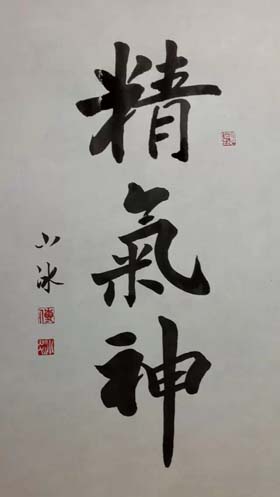 精氣神
小冰